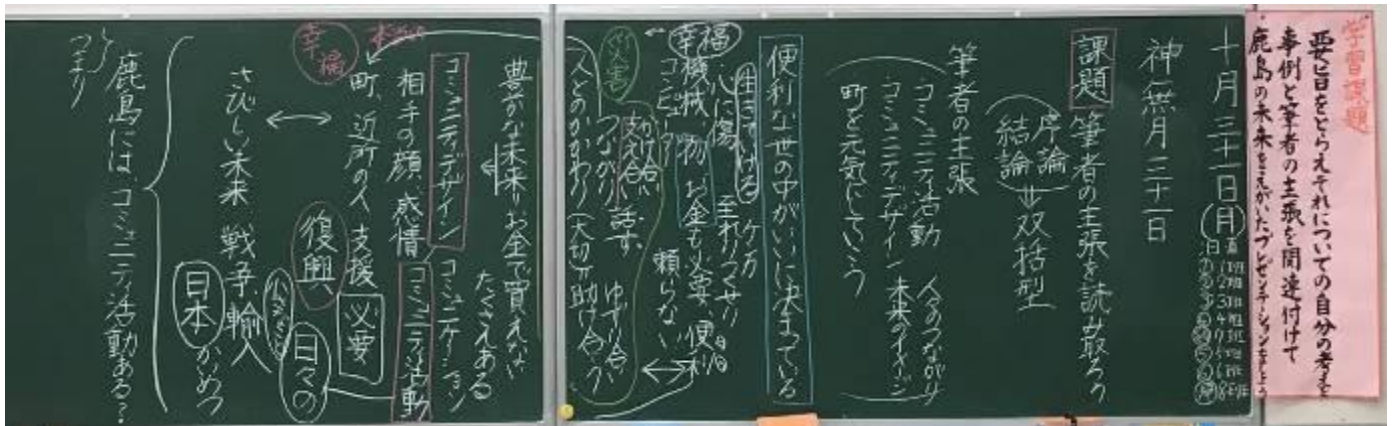 学習課題
要旨をとらえそれについての自分の考えを
事例と筆者の主張を関連付けて
鹿島の未来をえがいたプレゼンテーションをしよう
十月三十一日(月)
神無月三十一日
課題 筆者の主張を読み取ろう
序論
結論 ⇒ 双括型
筆者の主張
コミュニティ活動 人々のつながり
コミュニティデザイン 未来のイメージ
町を元気にしていこう
便利な世の中がいいに決まっている
生きていける ケガ
心に傷 至れりつくせり
幸福 機械 物 お金も必要 便利
コンピューター 頼らない
災害 助け合い
支え合い
つながり 話す ゆずり合い
人とのかかわり 大切 助け合う
豊かな未来 お金で買えない
たくさんある
コミュニティデザイン コミュニケーション
相手の顔、感情 コミュニティ活動
町、近所の人 支援 必要
幸福
復興 日々の
さびしい未来 戦争 輸入
日本 かいめつ
鹿島には、コミュニティ活動ある?
つながり